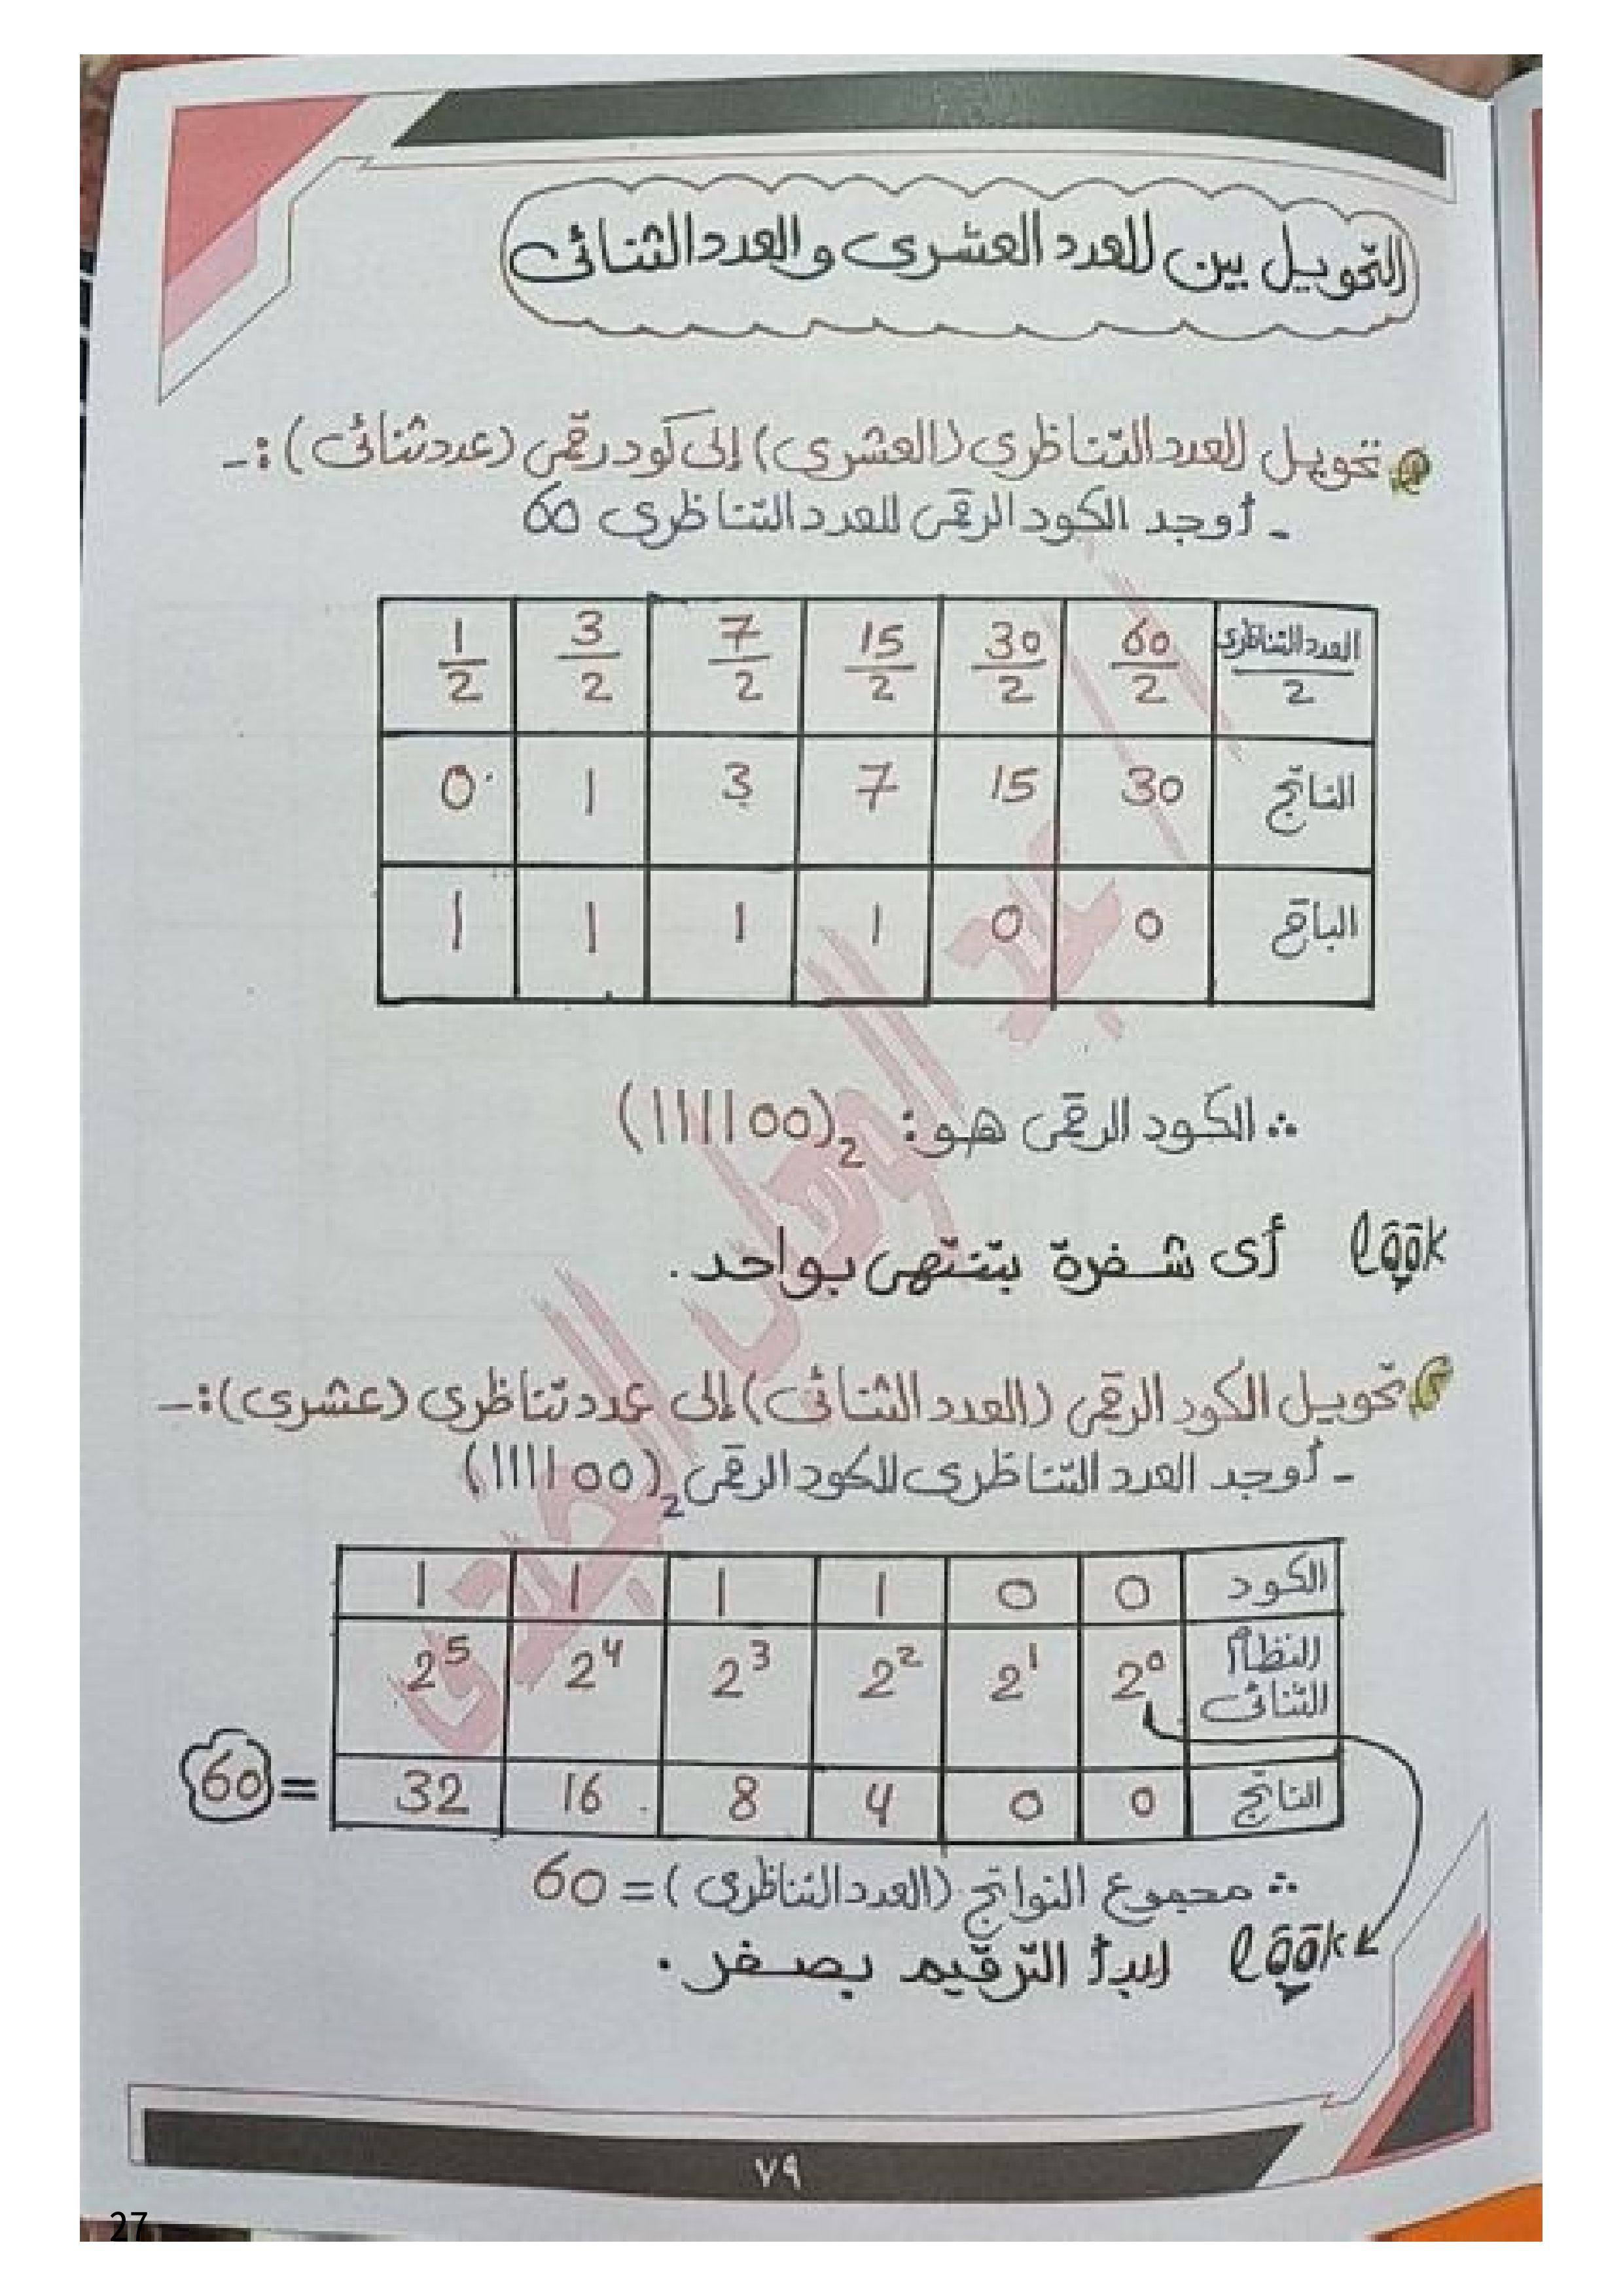 التحويل بين العدد العشرى والعدد الثنائى
تحويل العدد التناظرى (العشرى) إلى كود رقمى (عدد ثنائى) :-
- أوجد الكود الرقمى للعدد التناظرى 60
العدد التناظرى/2 60/2 30/2 15/2 7/2 3/2 1/2
الناتج 30 15 7 3 1 0
الباقى 0 0 1 1 1 1
∴ الكود الرقمى هو: (111100)2
look أى شفرة بتنتهى بواحد.
تحويل الكود الرقمى (العدد الثنائى) إلى عدد تناظرى (عشرى) :-
- أوجد العدد التناظرى للكود الرقمى (111100)2
الكود 0 0 1 1 1 1
النظام الثنائى 2⁰ 2¹ 2² 2³ 2⁴ 2⁵
الناتج 0 0 4 8 16 32 = 60
∴ مجموع النواتج (العدد التناظرى) = 60
look ابدأ الترقيم بصفر.
٧٩
27